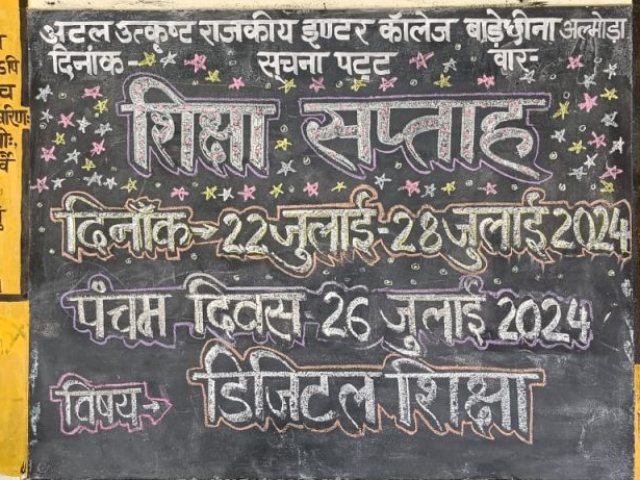 अटल उत्कृष्ट राजकीय इण्टर कॉलेज बाड़ेछीना अल्मोड़ा
दिनांक- सूचना पट्ट वार-
शिक्षा सप्ताह
दिनाँक→22जुलाई-28जुलाई2024
पंचम दिवस 26 जुलाई 2024
विषय→ डिजिटल शिक्षा